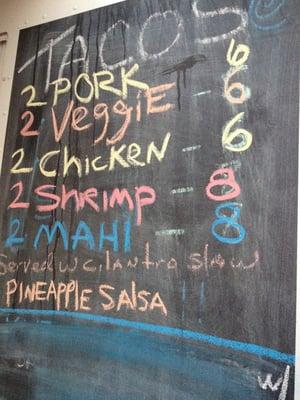 TACOS
2 PORK 6
2 VeggiE 6
2 ChickEN 6
2 Shrimp 8
2 MAHI 8
Served w cilantro slaw
PINEAPPLE SAlSA
w/